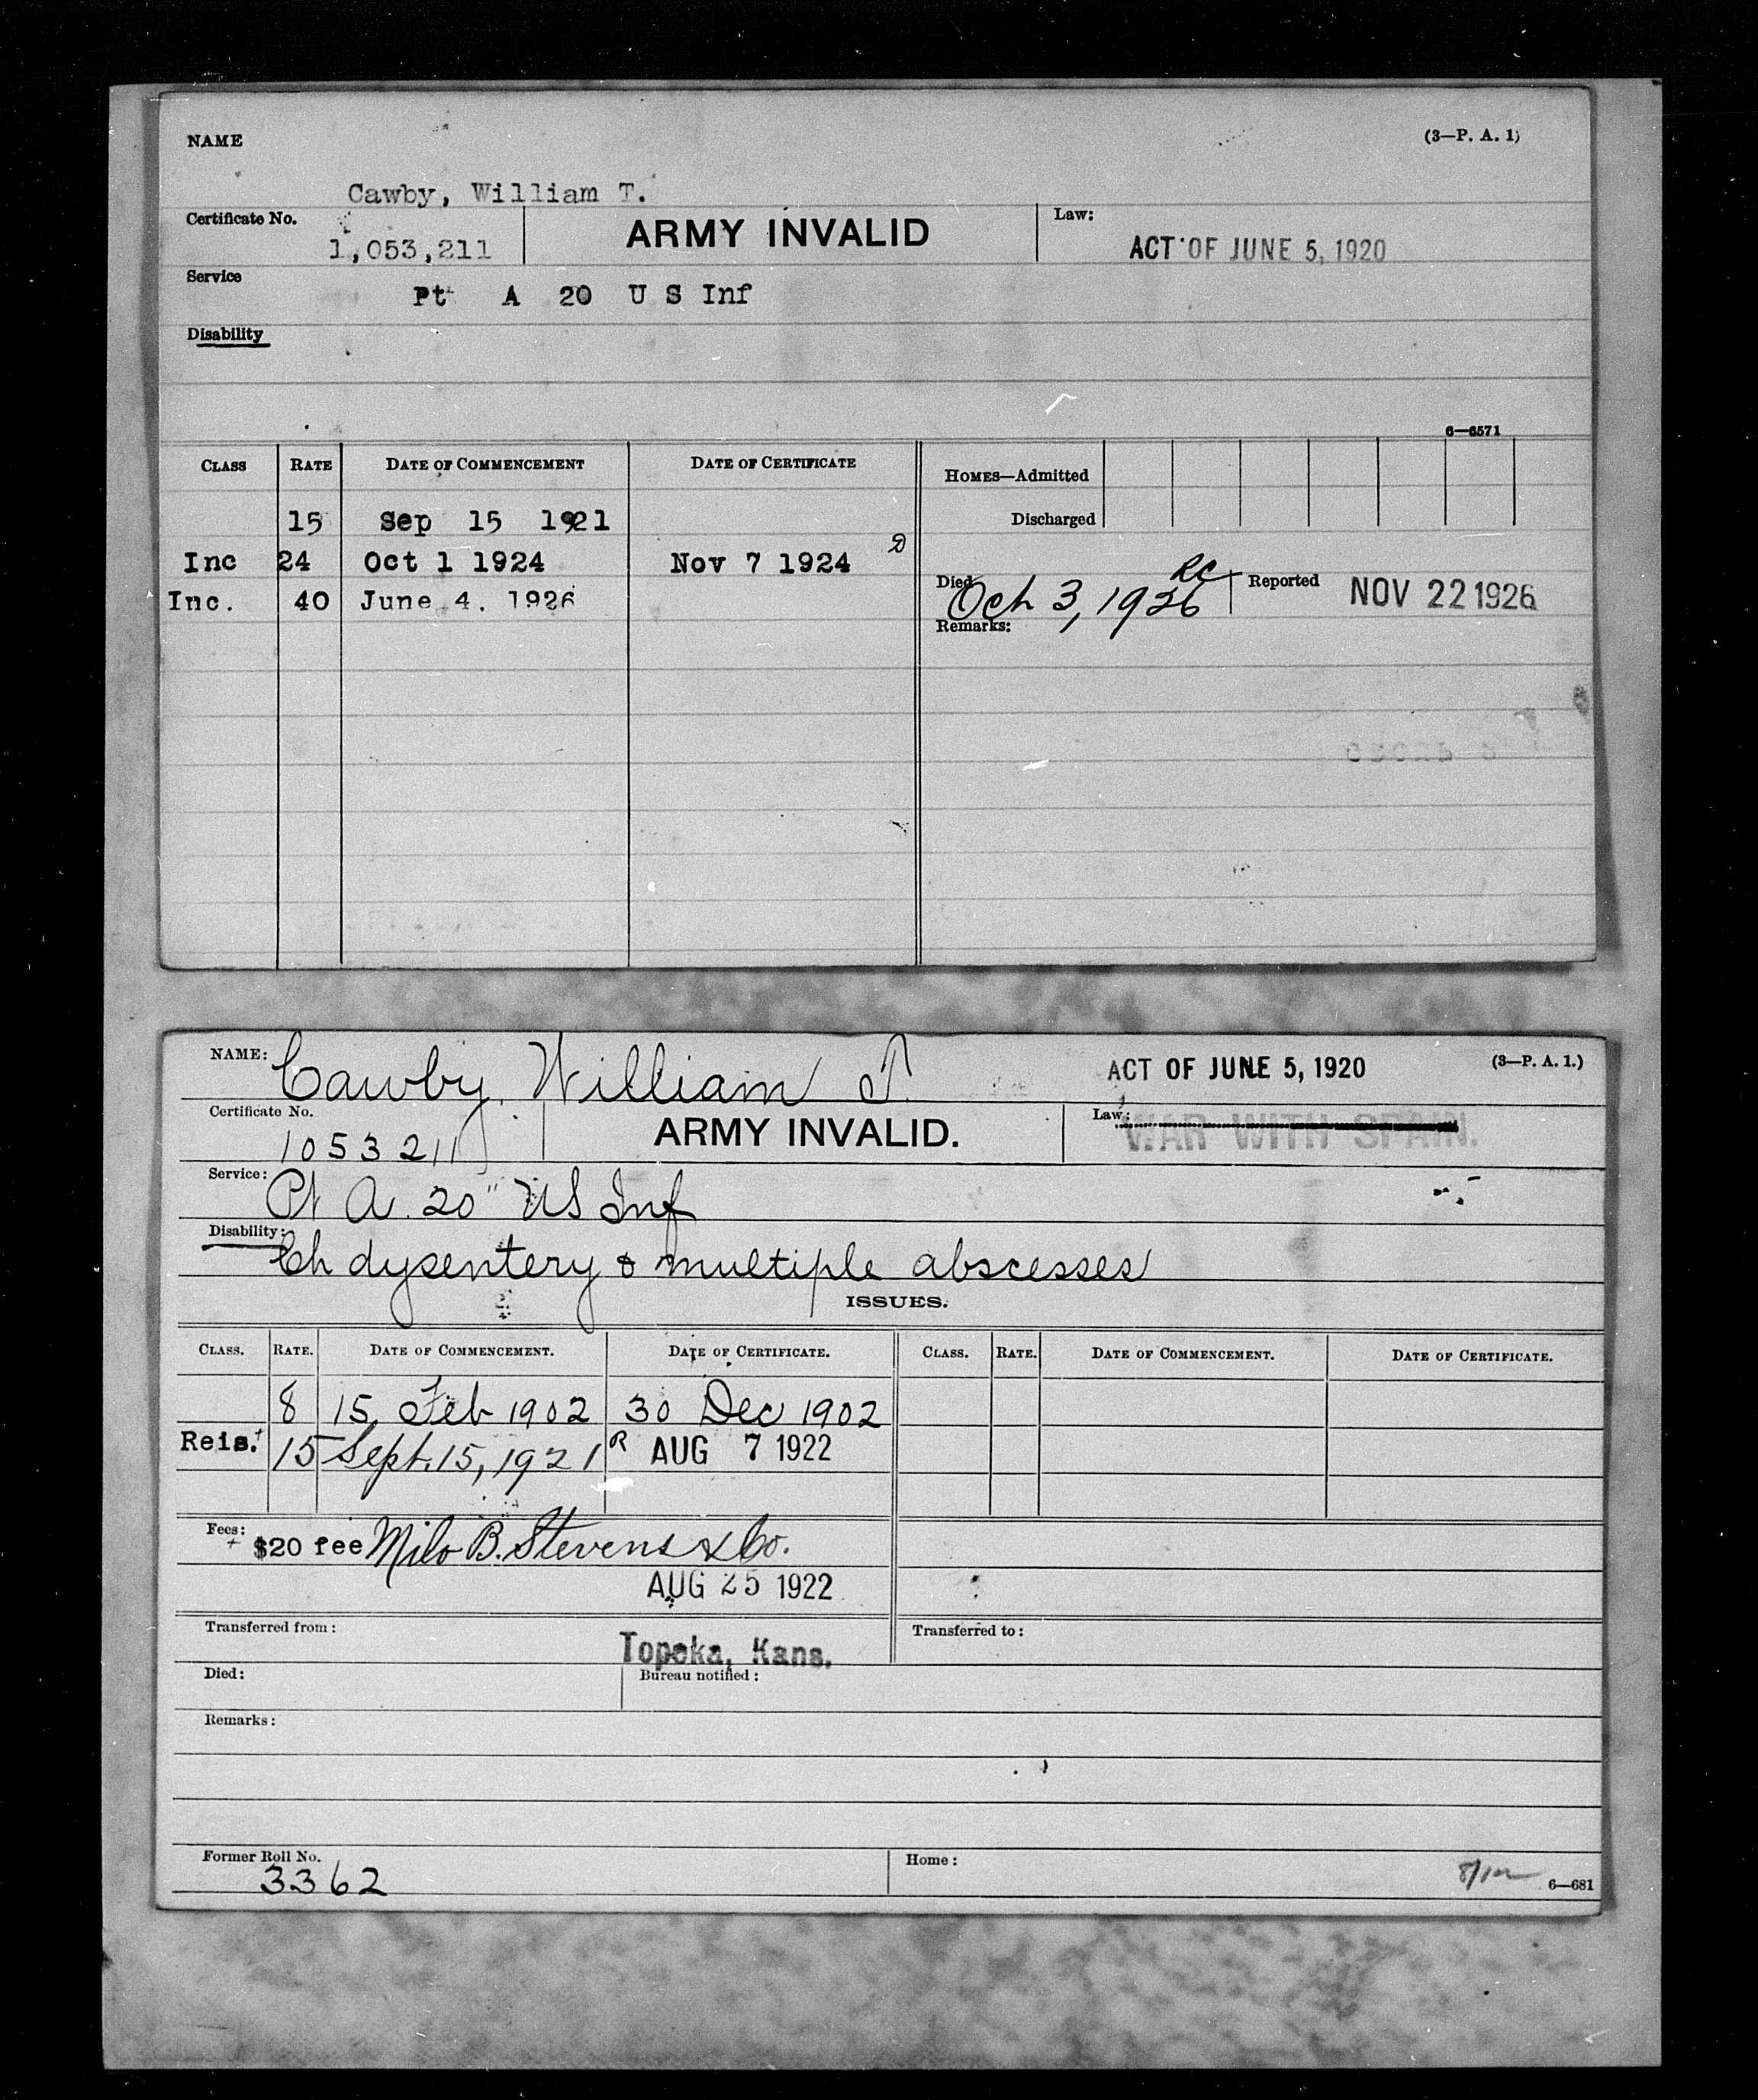 NAME (3—P. A. 1)
Cawby, William T.
Certificate No. ARMY INVALID Law:
1,053,211 ACT OF JUNE 5, 1920
Service
Pt A 20 U S Inf
Disability
6—6571
CLASS RATE DATE OF COMMENCEMENT DATE OF CERTIFICATE HOMES—Admitted
15 Sep 15 1921 Discharged
Inc 24 Oct 1 1924 Nov 7 1924 D
Inc. 40 June 4. 1926 Died Oct 3, 1926 RC Reported NOV 22 1926
Remarks:
NAME: Cawby, William T. ACT OF JUNE 5, 1920 (3—P. A. 1.)
Certificate No. ARMY INVALID. Law: WAR WITH SPAIN.
1053211
Service: Pt A. 20" US Inf
Disability: Ch dysentery & multiple abscesses
ISSUES.
CLASS. RATE. DATE OF COMMENCEMENT. DATE OF CERTIFICATE. CLASS. RATE. DATE OF COMMENCEMENT. DATE OF CERTIFICATE.
8 15, Feb 1902 30 Dec 1902
Reis. 15 Sept. 15, 1921 R AUG 7 1922
Fees: $20 fee Milo B. Stevens & Co.
AUG 25 1922
Transferred from: Topeka, Kans. Transferred to:
Died: Bureau notified:
Remarks:
Former Roll No. Home:
3362 6—681